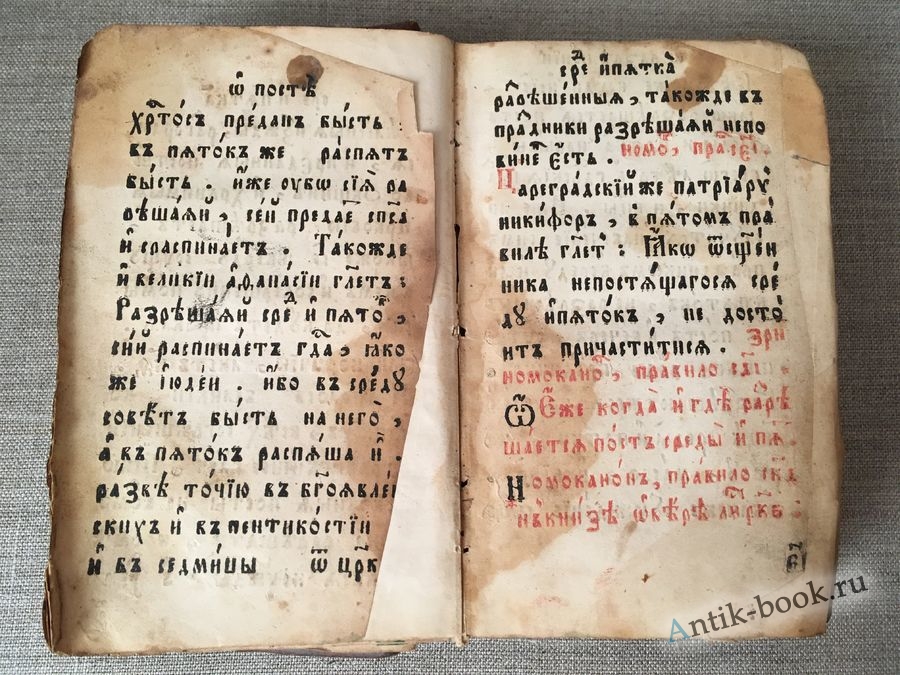 ѽ постѣ
хрⷭ҇то́съ пре́данъ бы́сть
въ пѧто́къ же распѧ́тъ
бы́сть . и҆́же оу҆́бѡ сїѧ̀ ра
рѣша́ѧй , се́й предае́тъ сп҃са
и҆ сраспина́етъ . Та́кожде
и҆ вели́кїи а҆ѳана́сїи гл҃етъ :
Разрѣша́ѧй сре́дꙋ и҆ пѧто́къ ,
се́й распина́етъ гдⷭ҇а , ꙗ҆́ко
же і҆ꙋде́и . и҆́бо въ сре́дꙋ
совѣ́тъ бы́сть на него̀ ,
а҆ къ пѧто́къ распѧ́ша и҆̀ .
ра́звѣ то́чїю въ бг҃оѧвле́н
скихъ и҆ въ пентико́стїи
и҆ въ седми́цы ѿ цр҃к
сре́д и҆ пѧтка̀
ра́зрѣше́нныѧ , та́кожде въ
пра́здники разрѣша́ѧй непо
ви́ненъ е҆́сть . номо́ , пра́
Цареградскїй же патрїа́рхъ
никифоръ , в пѧ́томъ пра́
вилѣ гл҃етъ : Ꙗ҆́кѡ ѿ сщ҃е́н
ника непостѧ́щагосѧ сре́
дꙋ и҆ пѧто́къ , не досто́
итъ причасти́тисѧ . Зри
номокано́ , пра́вило
Ѽ Е҆́же когда̀ и҆ гдѣ̀ разрѣ
ша́етсѧ по́стъ среды̀ и҆ пѧ́ .
Номокано́нъ , пра́вило ск҃ѕ
и҆ въ кни́зѣ ѽ вѣ́рѣ
Antik-book.ru